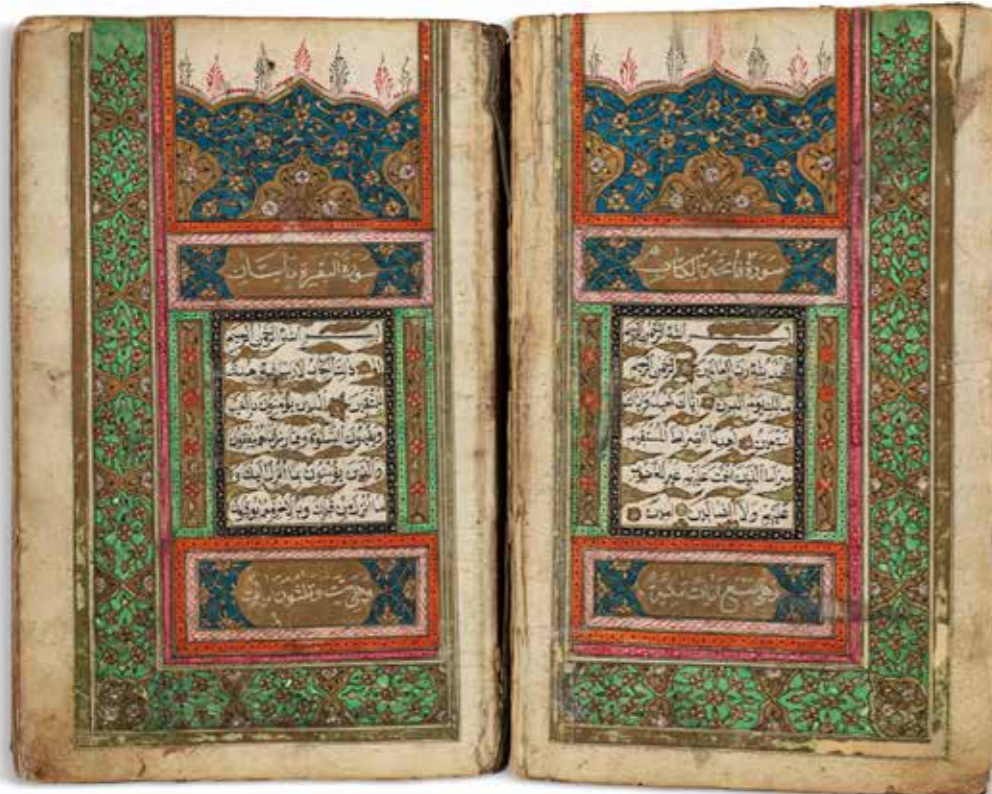 سورة فاتحة الكتاب
بسم الله الرحمن الرحيم
الحمد لله رب العالمين الرحمن الرحيم
مالك يوم الدين اياك نعبد واياك
نستعين اهدنا الصراط المستقيم
صراط الذين انعمت عليهم غير المغضوب
عليهم ولا الضالين امين
وهي سبع ايات مكية
سورة البقرة مأيتان
بسم الله الرحمن الرحيم
الم ذلك الكتاب لا ريب فيه هدى
للمتقين الذين يؤمنون بالغيب
ويقيمون الصلوة ومما رزقناهم ينفقون
والذين يؤمنون بما انزل اليك و
ما انزل من قبلك وبالاخرة هم يوقنون